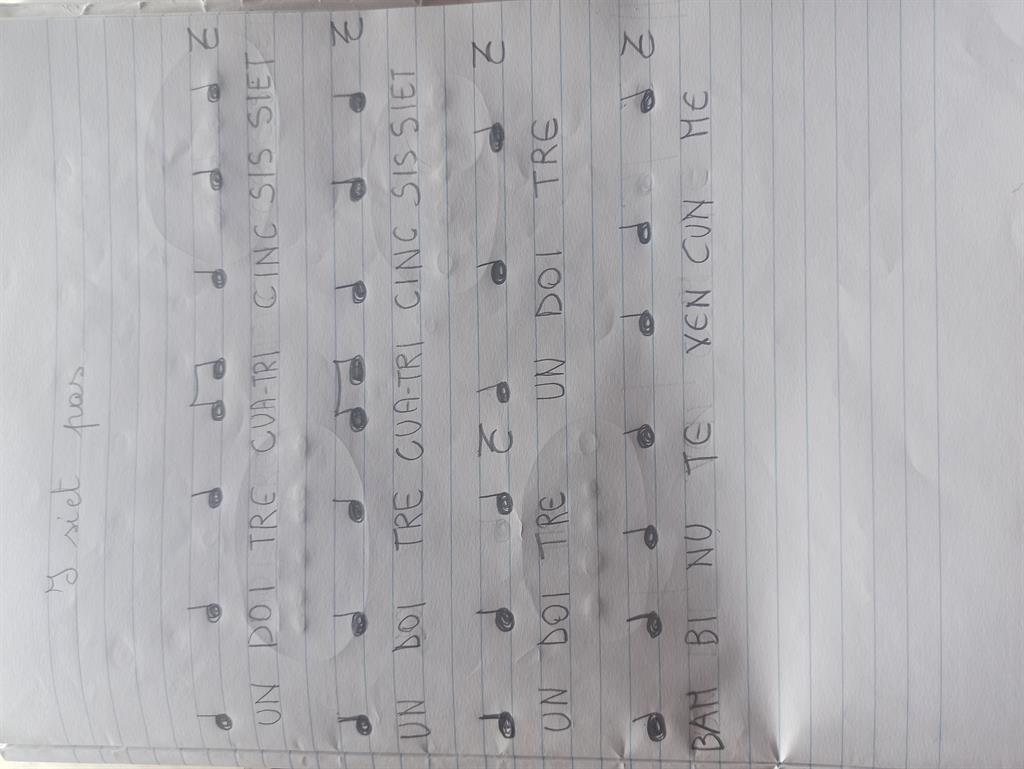 I siet pas
UN DOI TRE CUA-TRI CINC SIS SIET
UN DOI TRE CUA-TRI CINC SIS SIET
UN DOI TRE UN DOI TRE
BAM BI NU TE YEN CUN ME